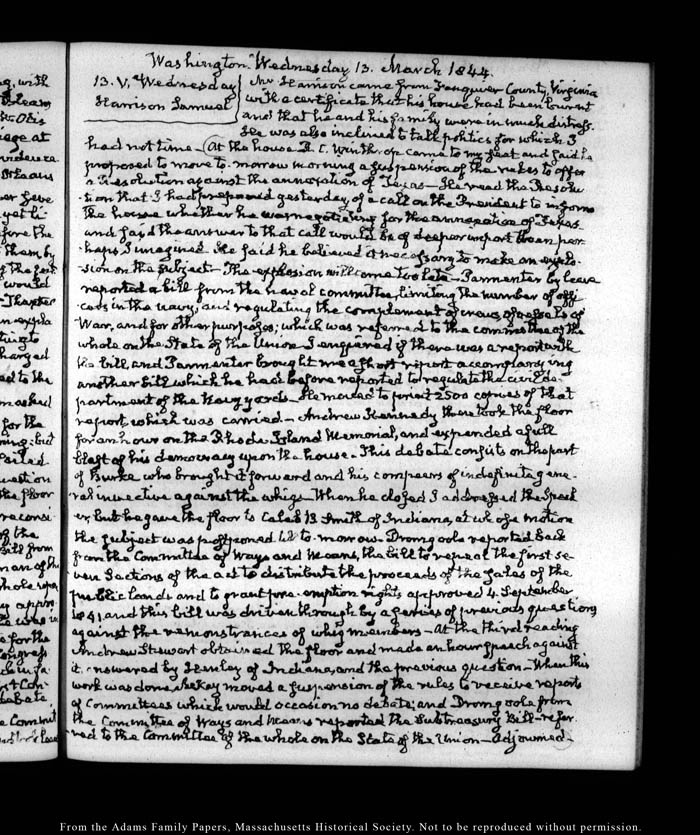 Washington. Wednesday 13. March 1844.
13. V. Wednesday
Harrison Samuel
Mr. Harrison came from Fauquier County, Virginia
with a certificate that his house had been burnt
and that he and his family were in much distress.
He was also inclined to talk politics for which I
had not time. At the house R. C. Winthrop came to my seat and said he
proposed to move to-morrow morning a suspension of the rules to offer
a Resolution against the annexation of Texas— He read the Resolu-
tion that I had prepared yesterday of a call on the President to inform
the house whether he was negotiating for the annexation of Texas
and said the answer to that call would be of deeper import than per-
haps I imagined. He said he believed it necessary to make an explo-
sion on the subject— The explosion will come too late— Parmenter by leave
reported a bill from the naval committee, limiting the number of offi-
cers in the navy, and regulating the complement of crews of vessels of
War, and for other purposes; which was referred to the committee of the
whole on the State of the Union I enquired if there was a report with
the bill, and Parmenter brought me a short report accompanying
another bill which he had before reported to regulate the civil de-
partment of the Navy yards— He moved to print 2500 copies of that
report, which was carried— Andrew Kennedy then took the floor
for an hour on the Rhode Island Memorial, and expended a full
blast of his democracy upon the house. This debate consists on the part
of Burke who brought it forward and his compeers of indefinite gene-
ral invective against the whigs— When he closed I addressed the Speak
er, but he gave the floor to Caleb B. Smith of Indiana, at whose motion
the subject was postponed till to-morrow. Dromgoole reported back
from the Committee of Ways and Means, the bill to repeal the first se-
ven Sections of the act to distribute the proceeds of the sales of the
public lands and to grant pre-emption rights approved 4. September
1841, and this bill was driven through by a series of previous questions,
against the remonstrances of whig members— At the third reading
Andrew Stewart obtained the floor and made an hour speech against
it. answered by Henley of Indiana, and the previous question— When this
work was done, moved a suspension of the rules to receive reports
of Committees which would occasion no debate; and Dromgoole from
the Committee of Ways and Means reported the Subtreasury Bill— refer-
red to the Committee of the whole on the State of the Union— Adjourned—
From the Adams Family Papers, Massachusetts Historical Society. Not to be reproduced without permission.